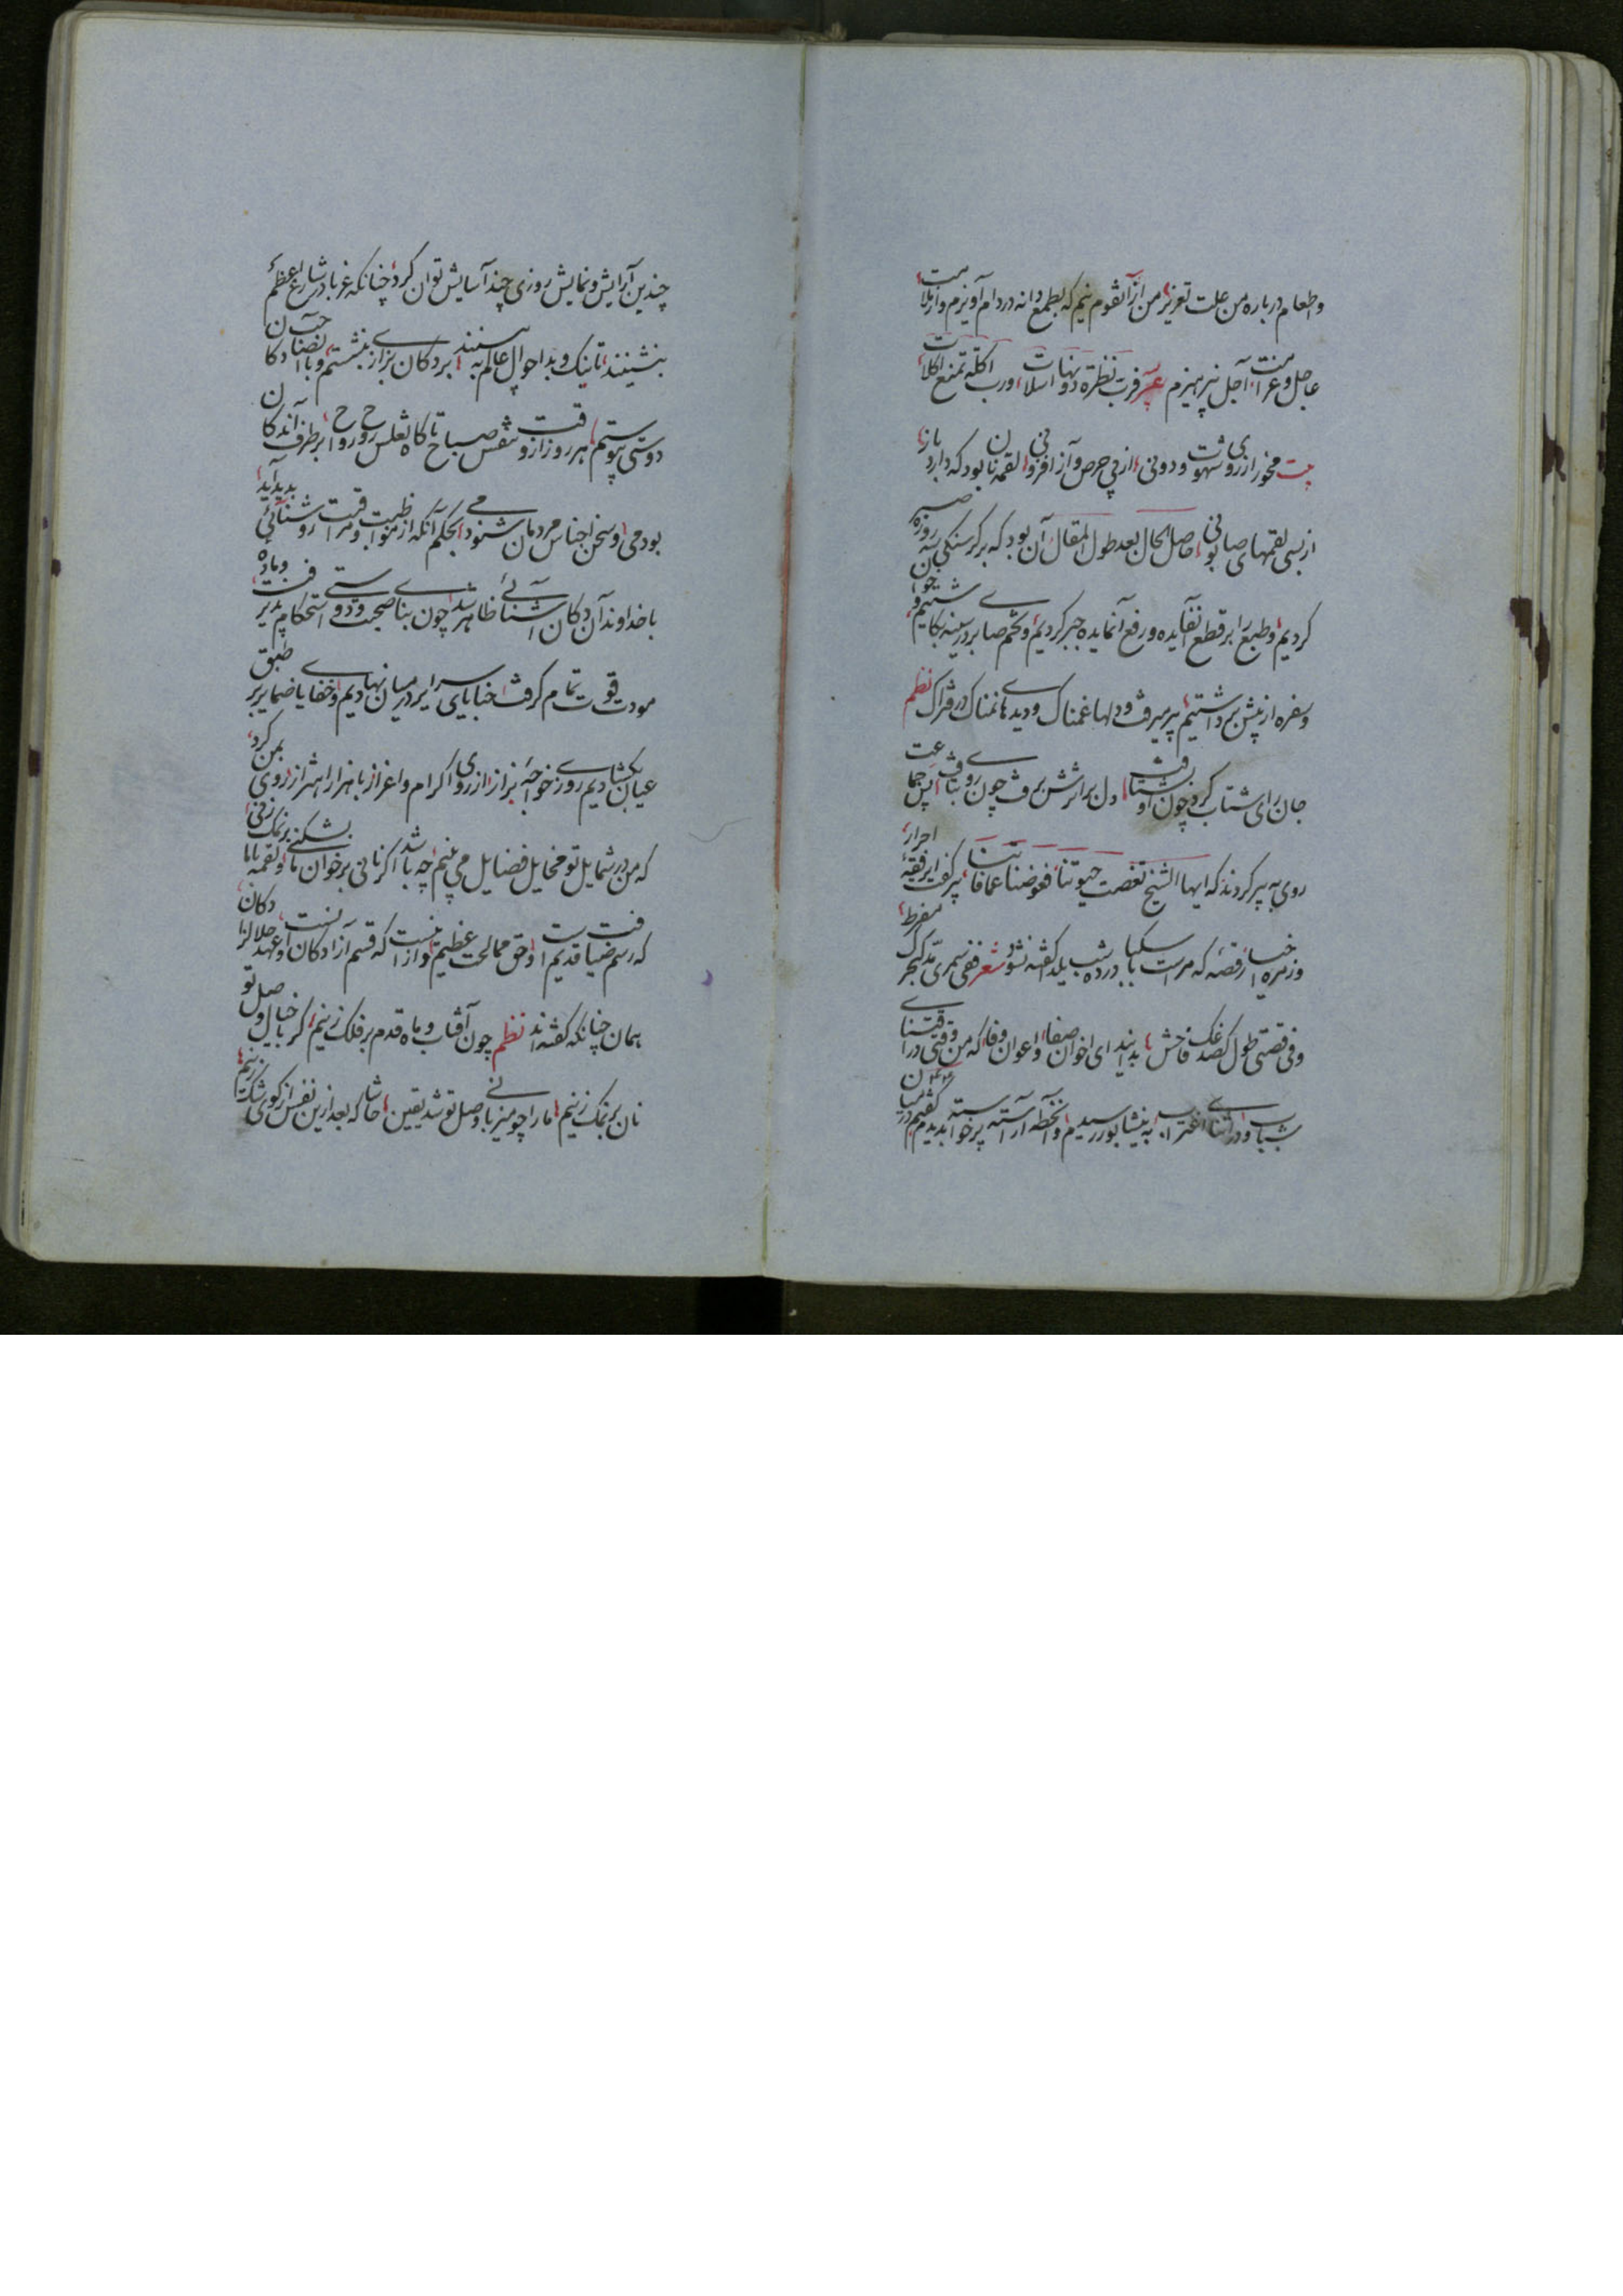 و طعام درباره من علت تعزیر من از آنقوم نیم که بطمع دانه در دام آویزم و از ملامت
عاجل و غرامت آجل نپرهیزم عربیه فرب نظرة دونها اسلات ورب اکلة تمنع اکلات
بیت مخور از روی شهوت و دونی از پی حرص و آز افزونی لقمه نان بود که دارد باز
از بسی لقمهای صابونی حاصل الحال بعد طول المقال آن بود که بر گرسنگی سه روزه صبر
کردیم و طبع را بر قطع آن فایده و رفع آن مایده جبر کردیم و تخم صابری در سینه بکاشتیم و چون
سفره از پیش برداشتیم پیر میرفت و دلها غمناک و دیدها نمناک در فتراک نظم
جان رای شتاب کرد چون او بشتافت دل بر اثرش برفت چون روی بتافت پس جماعت
روی به پیر کردند که ایها الشیخ نغصت حیوتنا فعوضنا عما فاتنا پیر گفت ای رفقه احرار
و زمره اخیار قصه که مراست با سکبا در ده شب یلدا گفته نشود شعر ففی سمری مد کهجرک مفرط
وفی قصتی طول کصدغک فاحش بدانید ای اخوان صفا و اعوان وفا که من وقتی در اقتنای
شباب و در اثنای اغتراب به نیشابور رسیدم و آن خطه آراسته پرخواسته بدیدم گفتم در میان
چندین آرایش و نمایش روزی چند آسایش توان کرد چنانکه غربا در شارع اعظم
بنشینند تا نیک و بد احوال عالم به بینند بر دکان بزازی بنشستم و با صاحب آن دکان
دوستی پیوستم هر روز از وقت تنفس صباح تا گاه تغلس رواح بر طرف آن دکان
بودمی و سخن اجناس مردمان شنودمی بحکم آنکه از مواظبت و مراقبت روشنائی پدید آید
با خداوند آن دکان آشنائی ظاهر شد چون بنای صحبت و دوستی استحکام پذیرفت و ماده
مودت قوت تمام گرفت خبایای سرایر در میان نهادیم و خفایا ضمایر بر طبق
عیان بگشادیم روزی خواجه بزاز از روی اکرام و اعزاز با هزار اهتزاز روی بمن کرد
که من در شمایل تو مخایل فضایل می بینم چه باشد اگر نانی بر خوان ما بشکنی و لقمه با ما بر نمک زنی
که رسم ضیافت قدیم است و حق ممالحت عظیم و از آنست که قسم آزادگان و عهد حلال زادگان
همان چنانکه گفته اند نظم چون آفتاب و ماه قدم بر فلک زنیم گر با خیال وصل تو
نان بر نمک زنیم ما را چو میزبانی وصل تو شد یقین حاشا که بعد ازین نفس از کوی شک زنیم